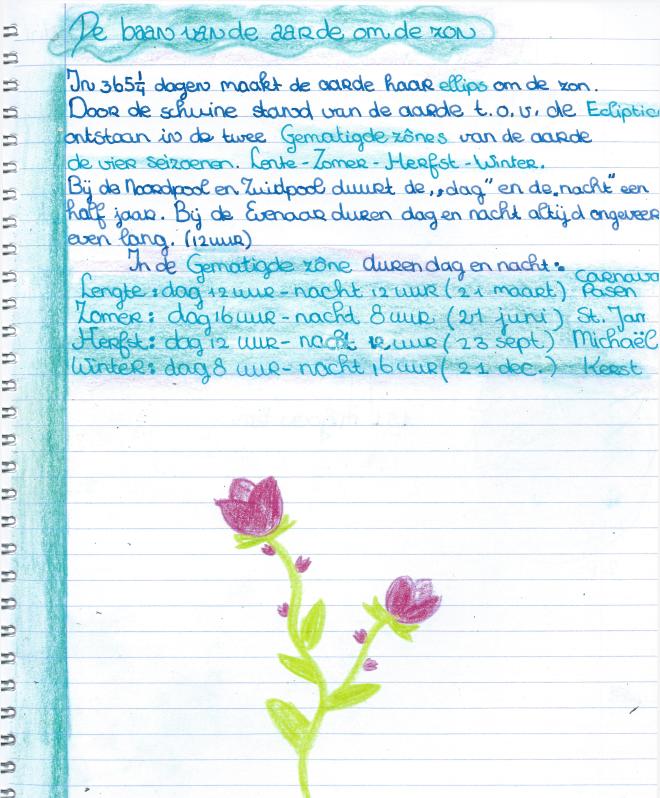 De baan van de aarde om de zon
In 365¼ dagen maakt de aarde haar ellips om de zon.
Door de schuine stand van de aarde t.o.v. de Ecliptica
ontstaan in de twee Gematigde zônes van de aarde
de vier seizoenen. Lente-Zomer-Herfst-Winter.
Bij de Noordpool en Zuidpool duurt de „dag" en de „nacht" een
half jaar. Bij de Evenaar duren dag en nacht altijd ongeveer
even lang. (12 uur)
In de Gematigde zône duren dag en nacht:
Lengte: dag 12 uur - nacht 12 uur (21 maart) Carnaval Pasen
Zomer: dag 16 uur - nacht 8 uur (21 juni) St. Jan
Herfst: dag 12 uur - nacht 12 uur (23 sept) Michaël
Winter: dag 8 uur - nacht 16 uur (21 dec.) Kerst